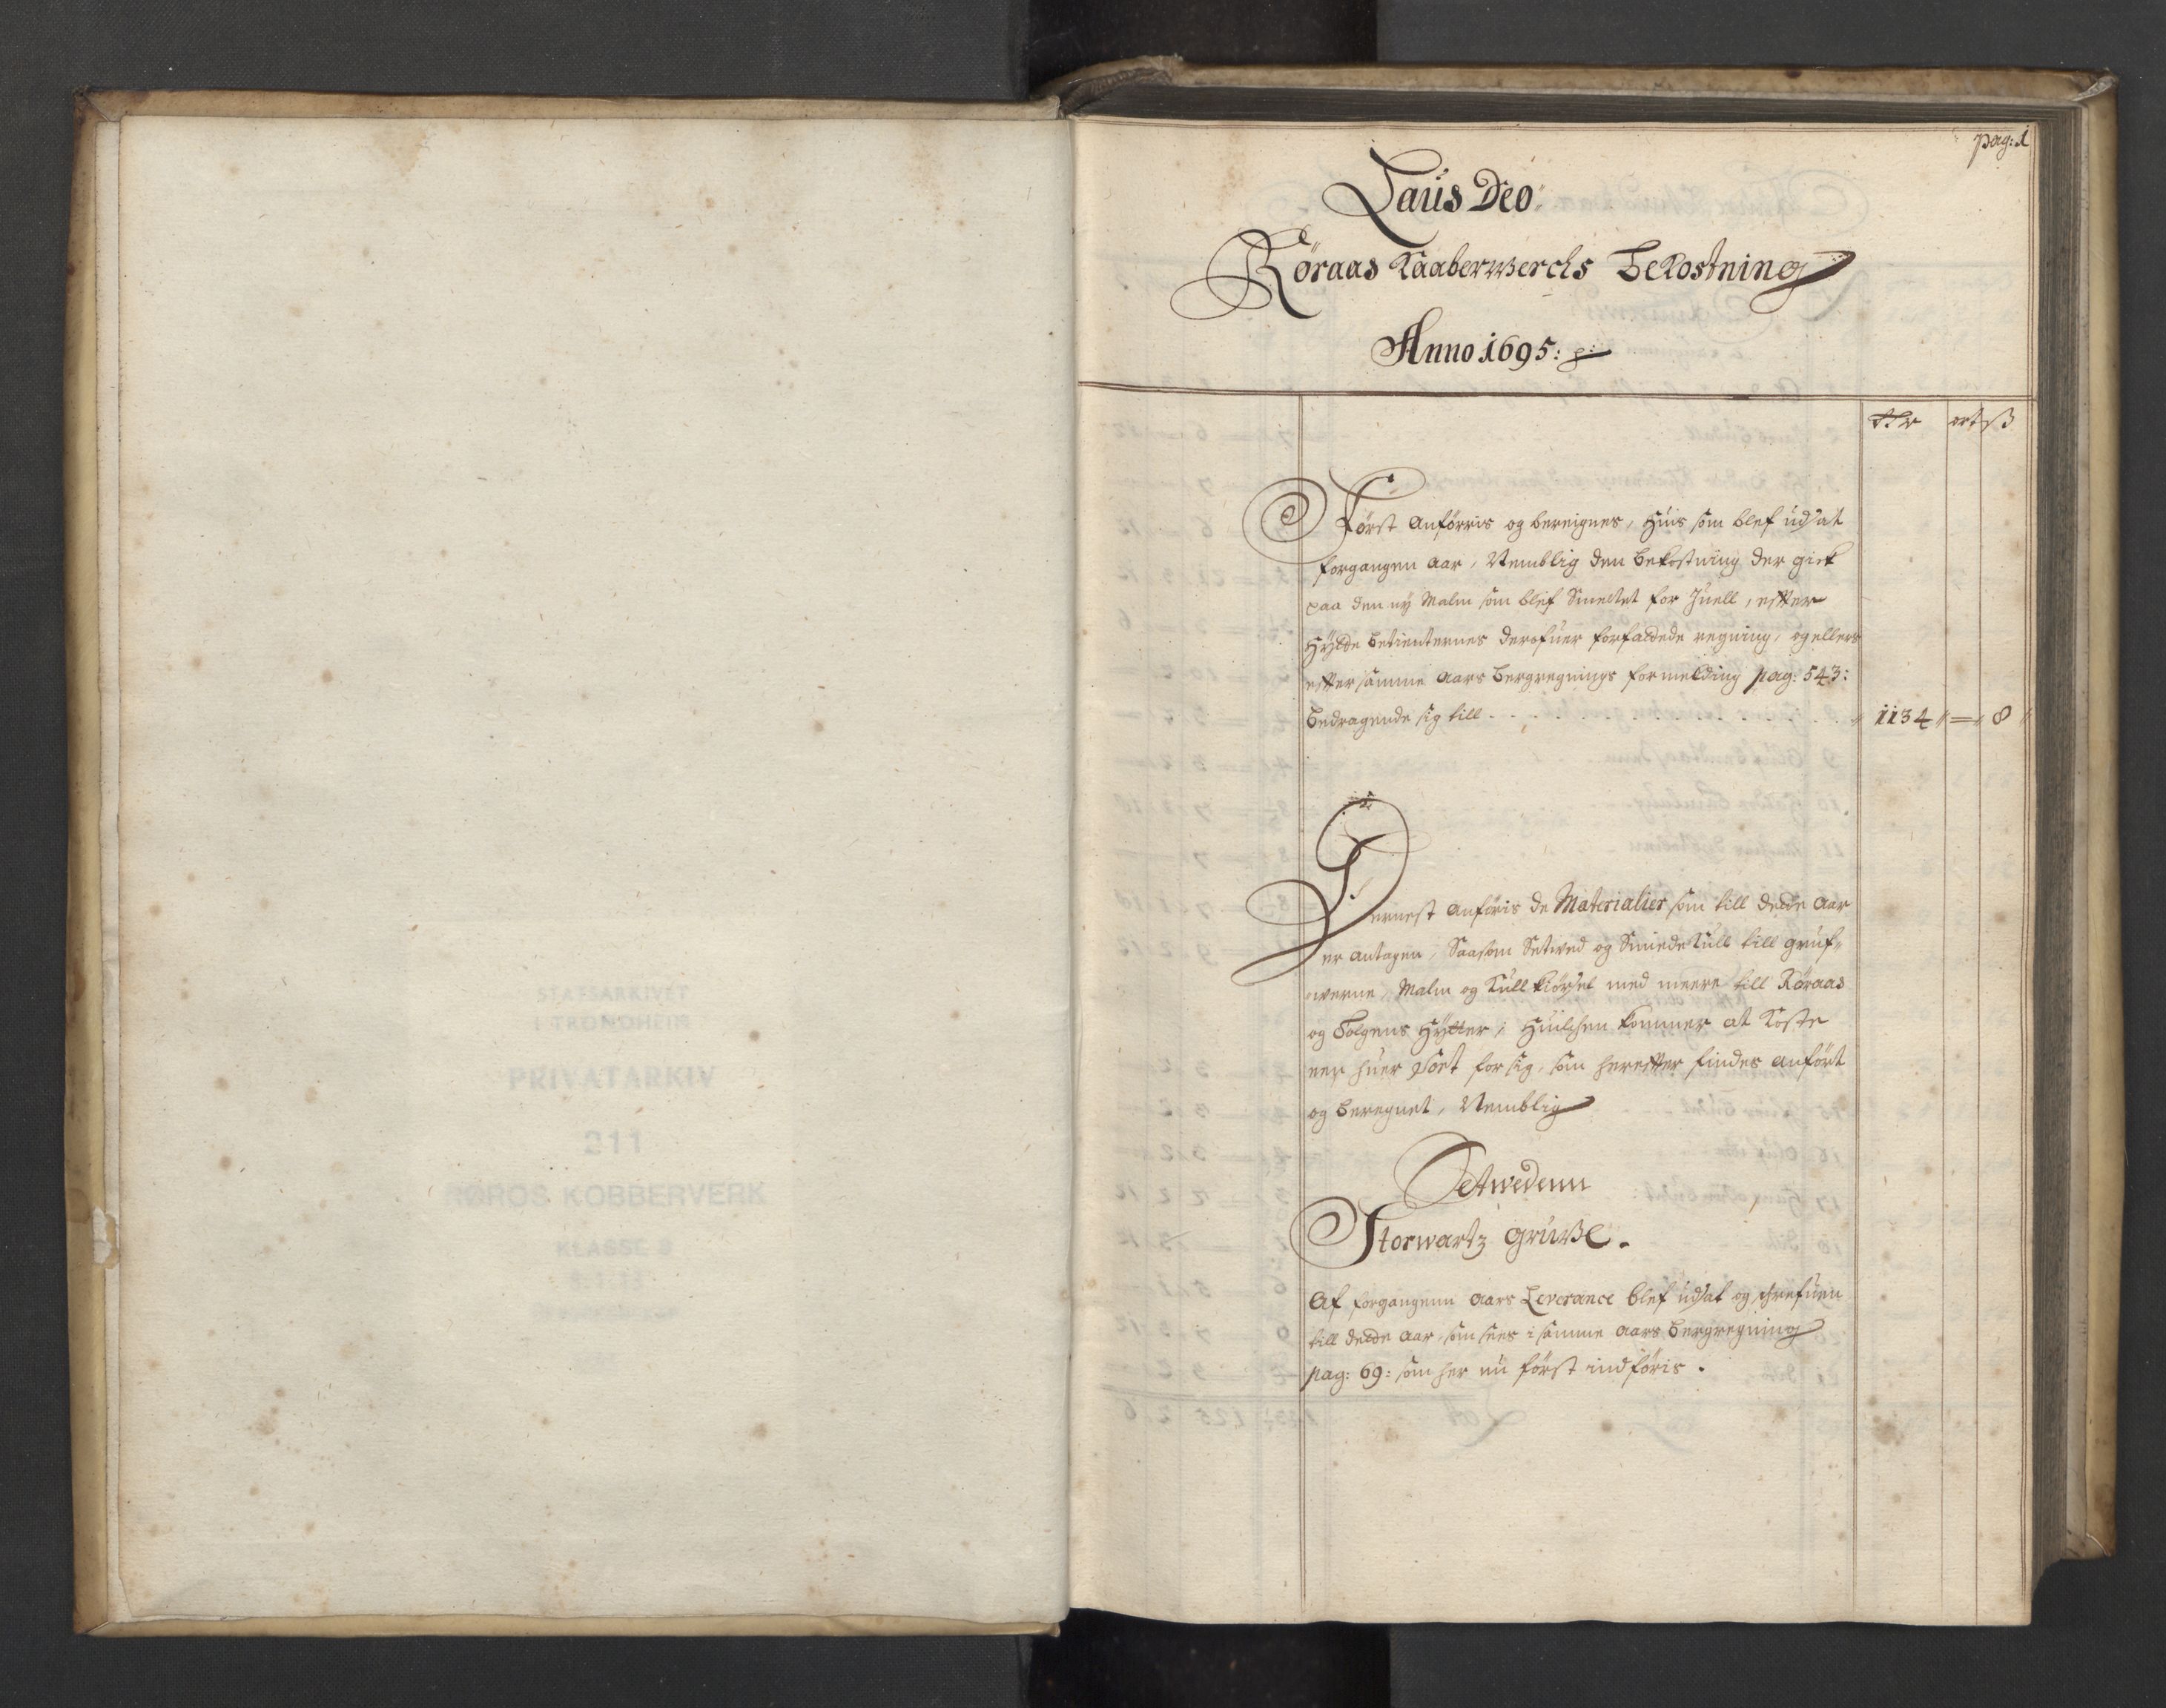 STATSARKIVET
I TRONDHEIM
PRIVATARKIV
211
RØROS KOBBERVERK
KLASSE
pag: 1
Laus Deo
Röraas Kaaberwerchs Bekostning
Anno 1695:
ort ß
Först anförris og bereignes, huis som blef udsat
forgangen aar, Nemblig den bekostning der gick
paa den ny Malm som blef Smeltet for Juell, efter
Hytte betienternes derofuer forfattede regning, og ellers
efter samme aars bergregnings formelding pag: 543:
bedragende sig till 1134 = 8
Dernest anföris de Materialier som till dette aar
er antagen, Saasom Setwed og Smedekull till gruf-
werne, Malm og Kull kiörsel med meere till Röraas
og Tolgens Hytter, huilchen kommer at koste
een huer post for sig, som herefter findes anfört
og beregnet, Nemblig
Setwedenn
Storwartz gruwe.
Af forgangenn aars Leverance blef udsat og schrefuen
till dette aar, som sees i samme aars bergregning
pag: 69: som her nu först indföris.